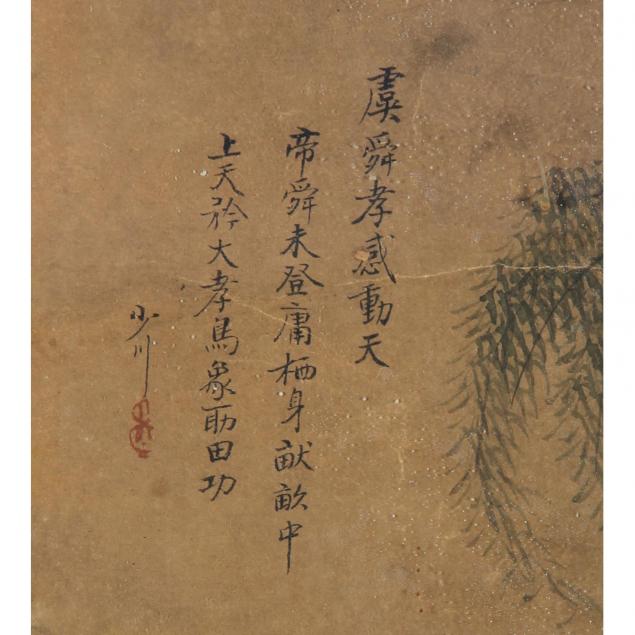 虞舜孝感動天
帝舜未登庸栖身畎畝中
上天矜大孝鳥象助田功
小川